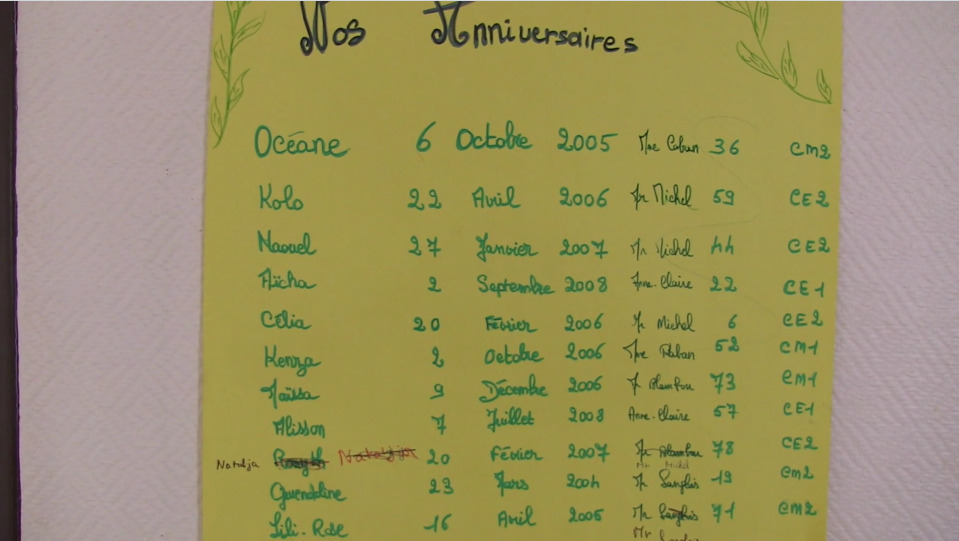 Nos Anniversaires
Océane 6 Octobre 2005 Mme 36 CM2
Kolo 22 Avril 2006 Mr Michel 59 CE2
Naouel 27 Janvier 2007 Mr Michel 44 CE2
Aïcha 2 Septembre 2008 Anne-Claire 22 CE1
Célia 20 Février 2006 Mr Michel 6 CE2
Kenza 2 Octobre 2006 Mme 52 CM1
Maïssa 9 Décembre 2006 73 CM1
Alisson 7 Juillet 2008 Anne-Claire 57 CE1
Natalja 20 Février 2007 Mr 78 CE2
Mr Michel
Gwendoline 23 Mars 2004 Mr 19 CM2
Lili-Rose 16 Avril 2005 Mr 71 CM2
Mr